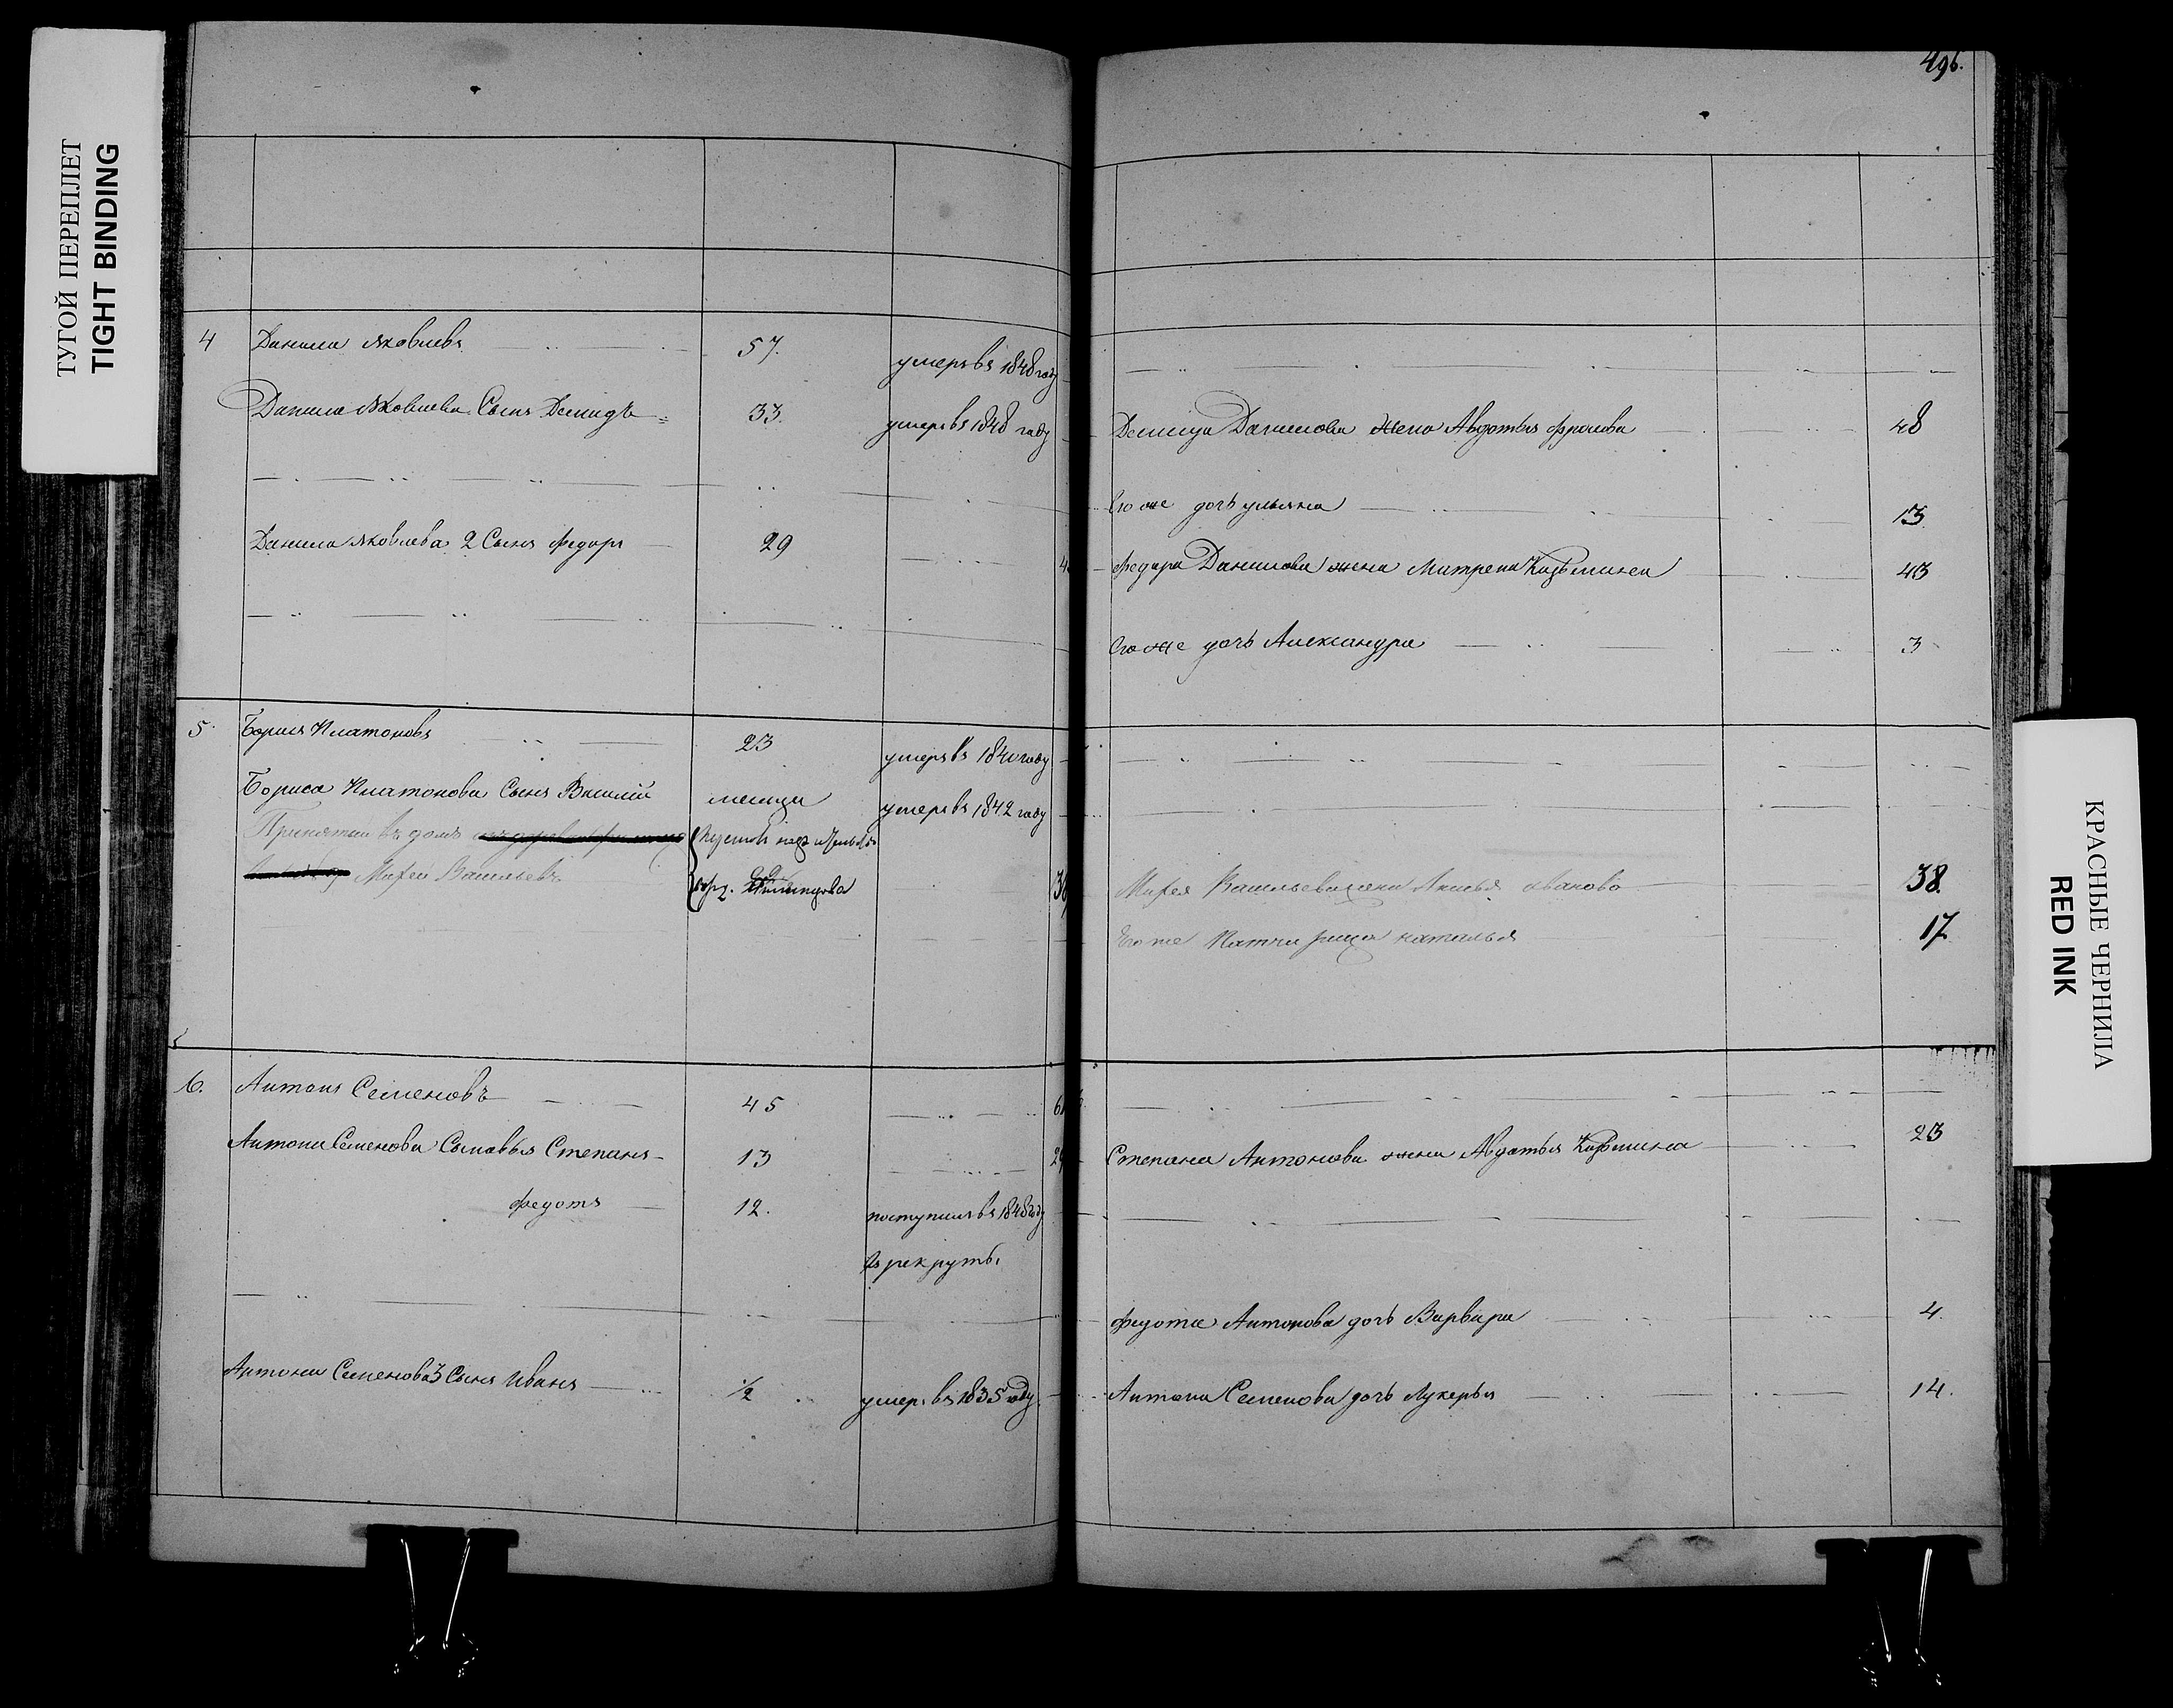 ТУГОЙ ПЕРЕПЛЕТ
TIGHT BINDING
4 Данила Яковлевъ 57. умеръ въ 1848 году
Данила Яковлева Сынъ Демидъ 33. умеръ въ 1848 году
Данила Яковлева 2 Сынъ Федоръ 29
5 Борисъ Платоновъ 23 умеръ въ 1840 году
Бориса Платонова Сынъ Василій месяцъ умеръ въ 1842 году
Принятый въ домъ
Михей Васильевъ
6. Антонъ Семеновъ 45
Антона Семенова Сыновья Степанъ 13
Федотъ 12. поступилъ въ 1848 году
въ рекруты
Антона Семенова 3 Сынъ Иванъ 1/2 умеръ въ 1835 году
496.
Демида Данилова жена Авдотья Фролова 48
Его же дочь Ульяна 13
Федора Данилова жена Матрена Кузьмина 43
Его же дочь Александра 3
Михея Васильева жена Ивановa 38.
Его же Наталья 17
Степана Антонова жена Авдотья Кузьмина 23
Федота Антонова дочь Варвара 4.
Антона Семенова дочь Лукерья 14.
КРАСНЫЕ ЧЕРНИЛА
RED INK